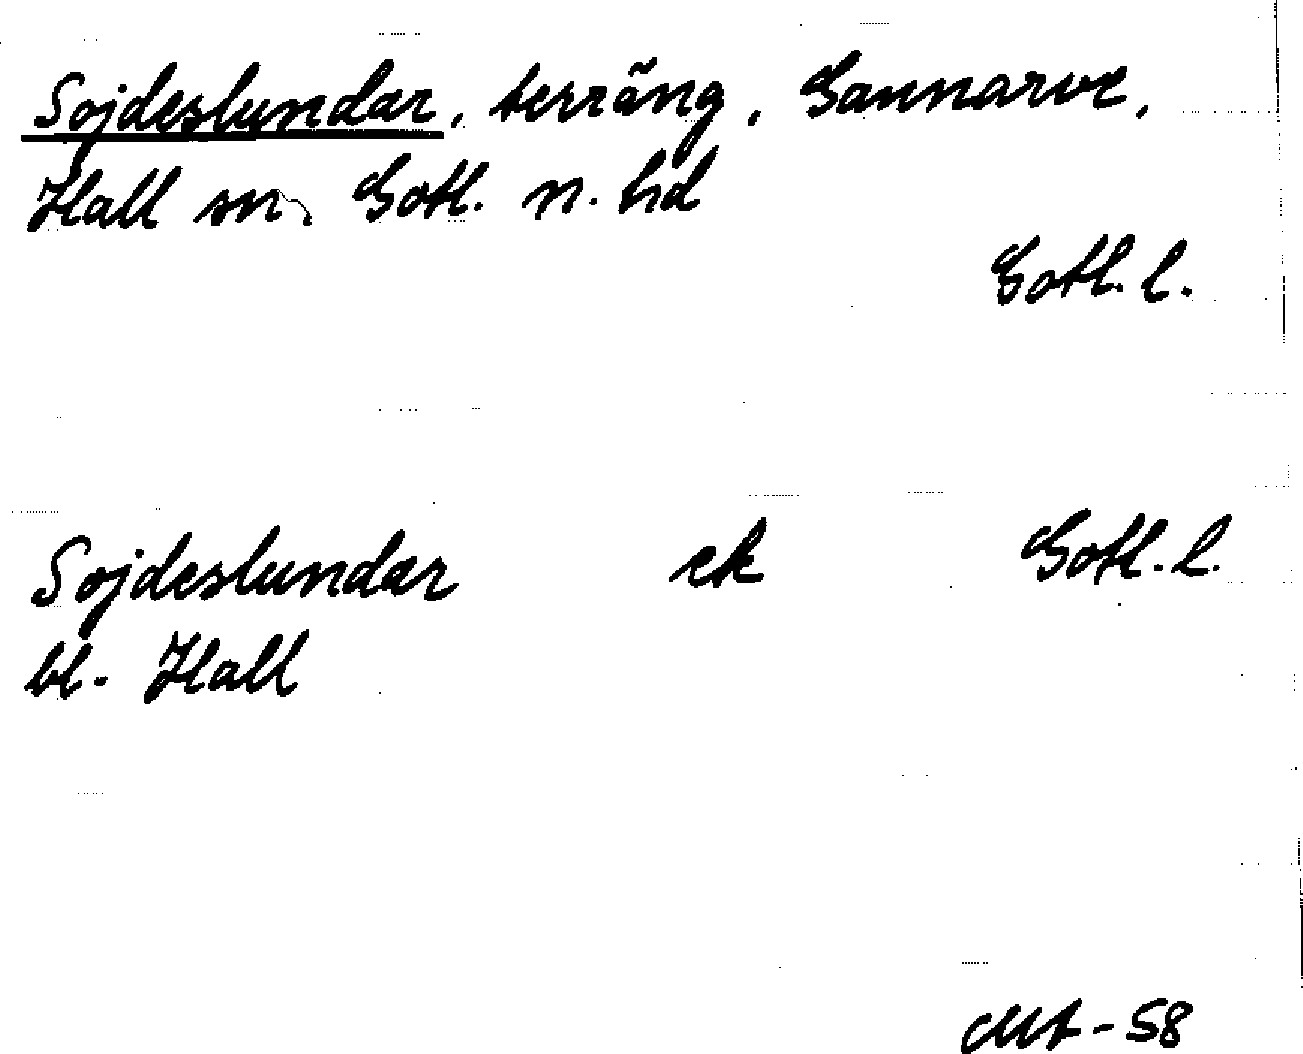 Sojdeslundar, terräng, Gannarve,
Hall sn, Gotl. n. hd
Gotl. l.
Sojdeslundar ek Gotl. l.
bl. Hall